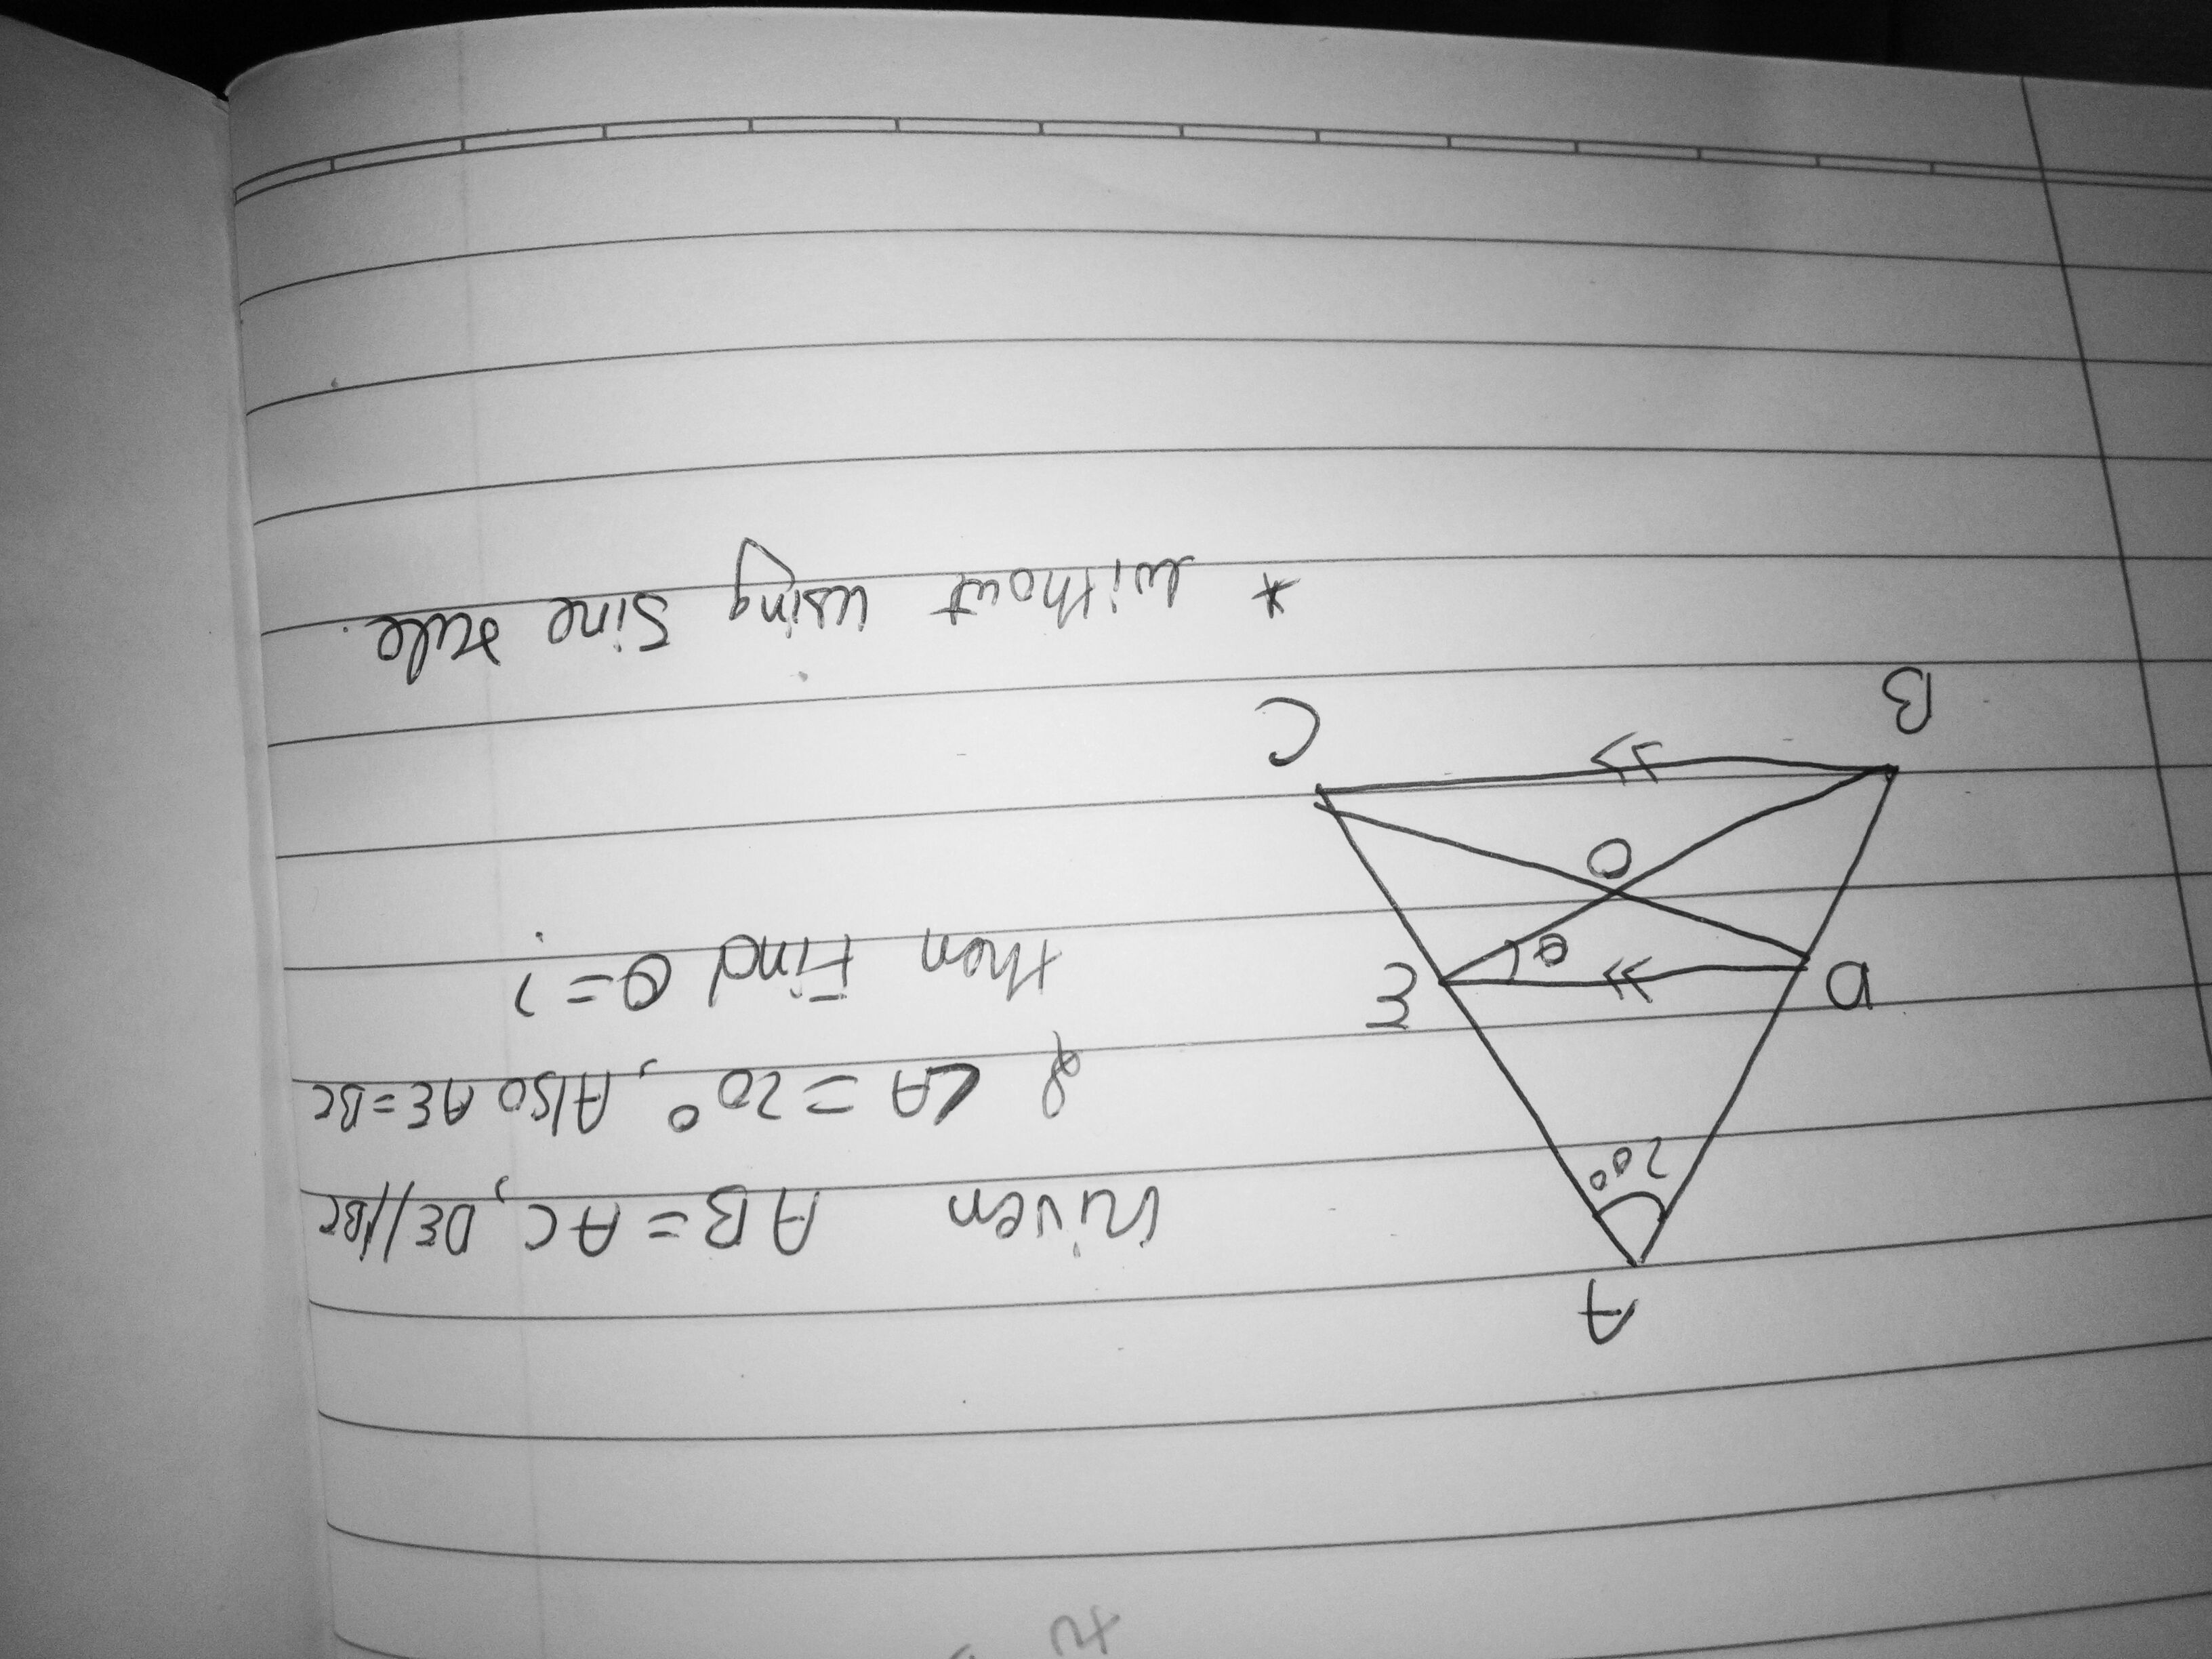 A
20°
Given AB = AC, DE//BC
& ∠A = 20°, Also AE = BC
then Find θ = ?
D
E
θ
O
B
C
* without using Sine rule.